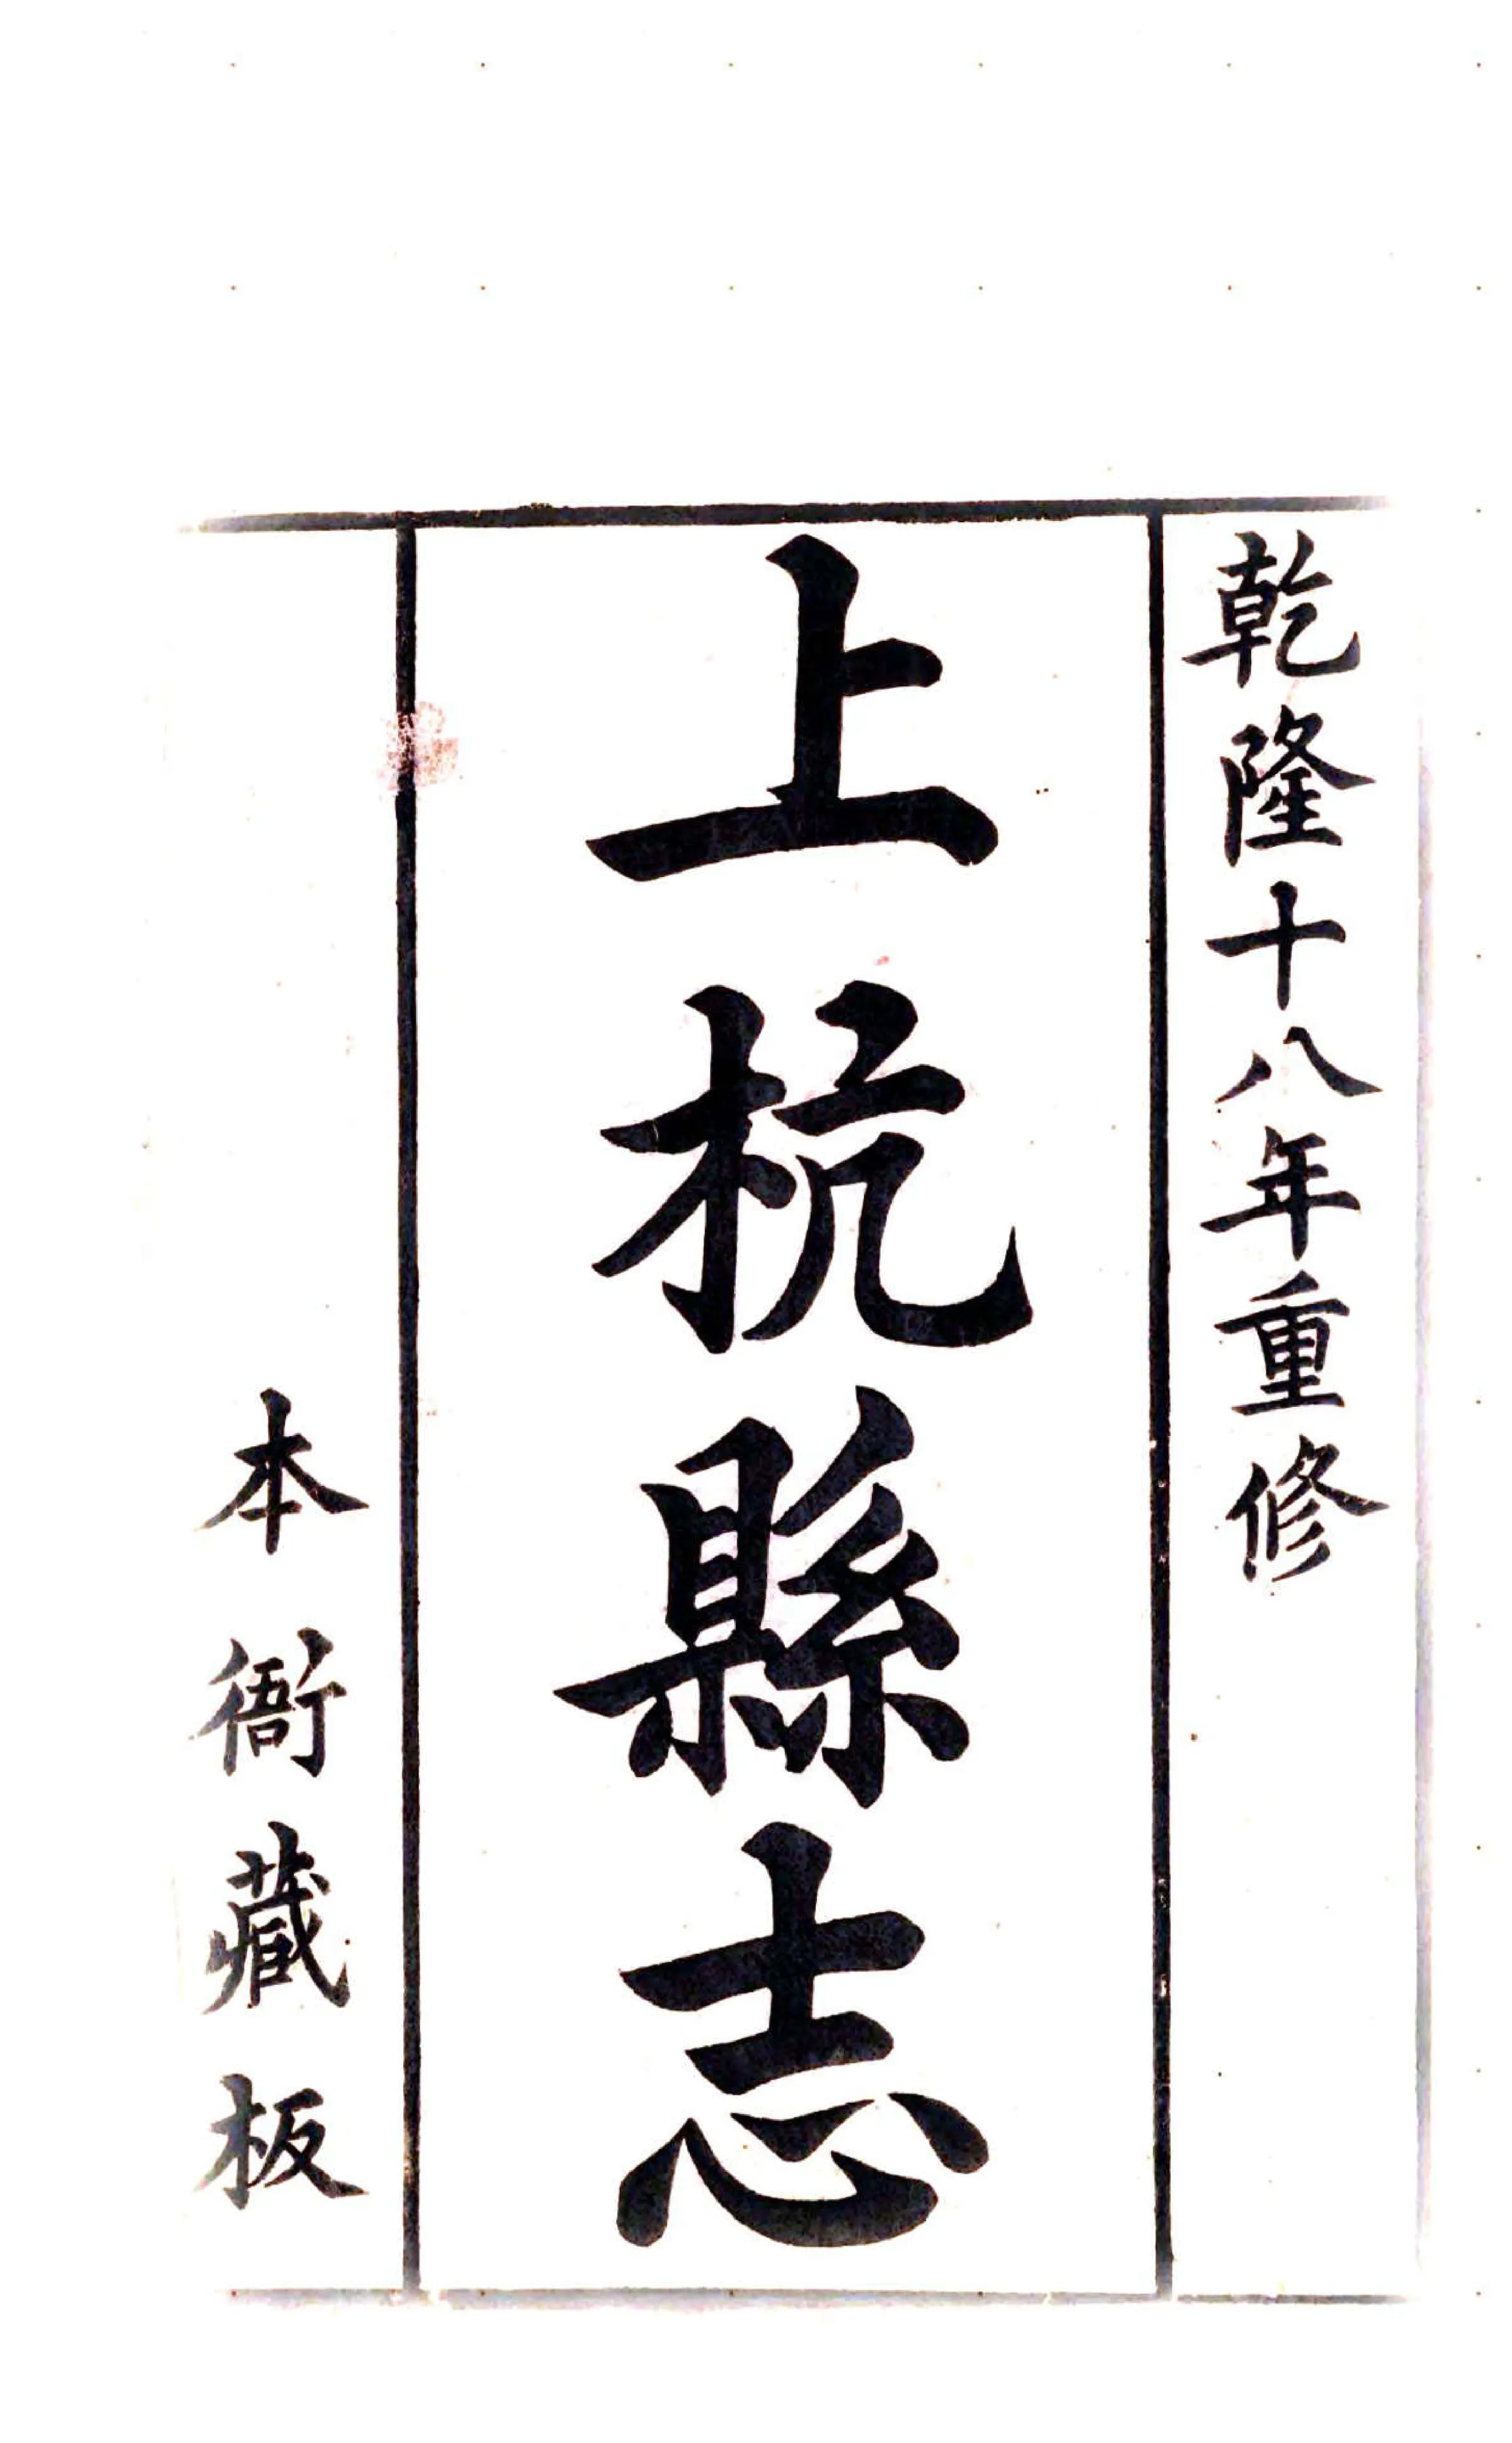 乾隆十八年重修
上杭縣志
本衙藏板